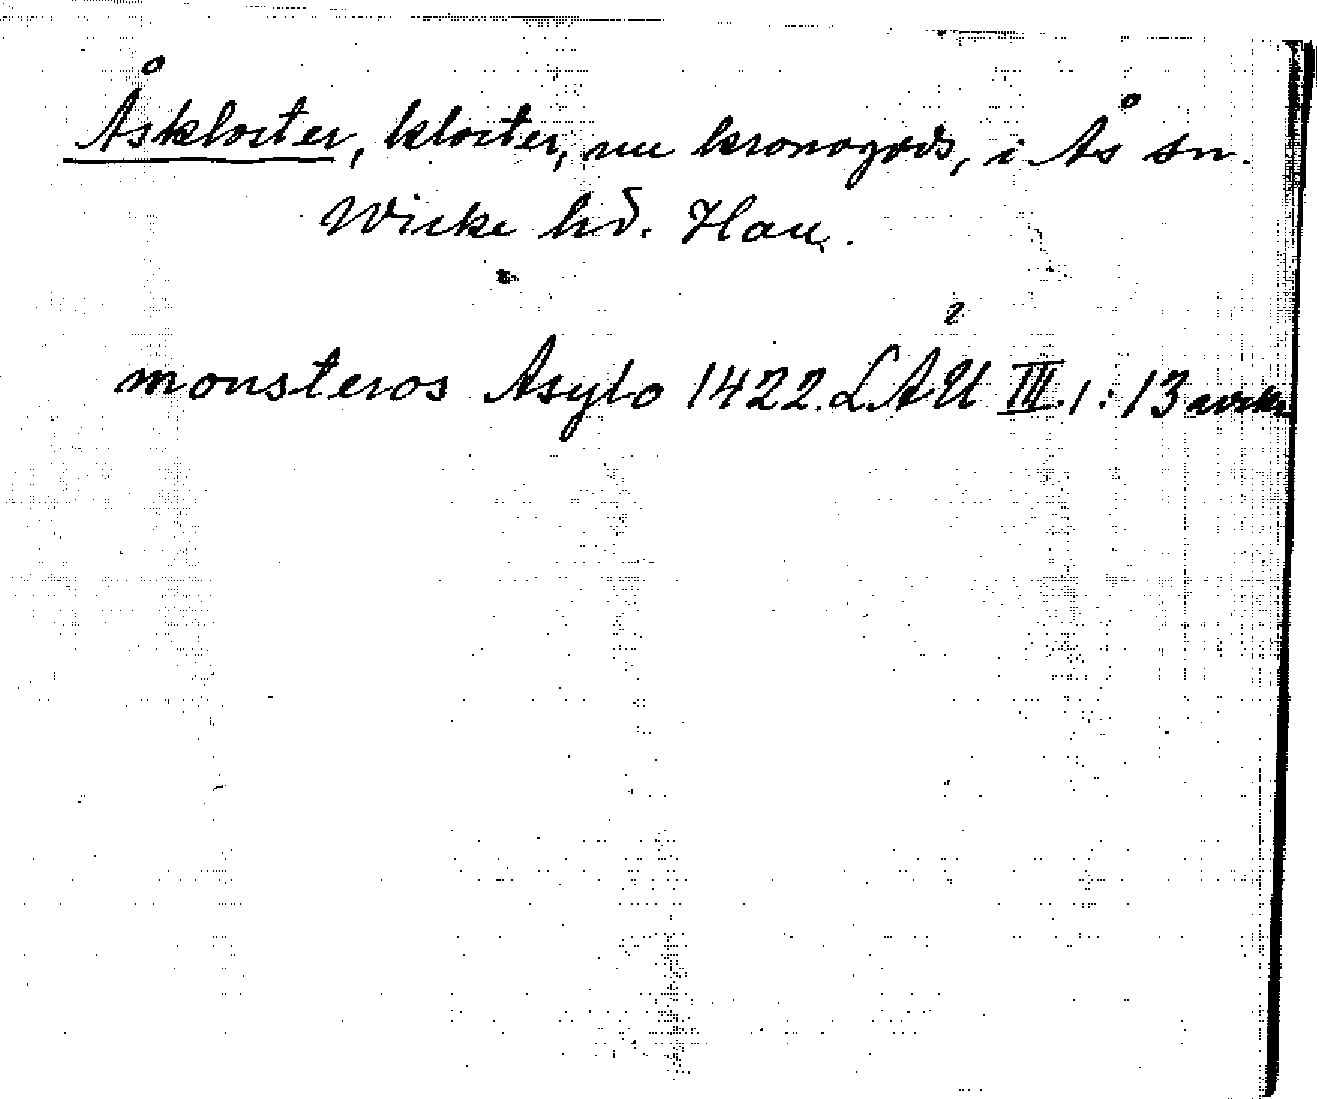 Åskloster, kloster, nu kronogods, i Ås sn.
Wiske hd. Hall.
monsteros Asylo 1422. LÅU III.1:13 avskr.